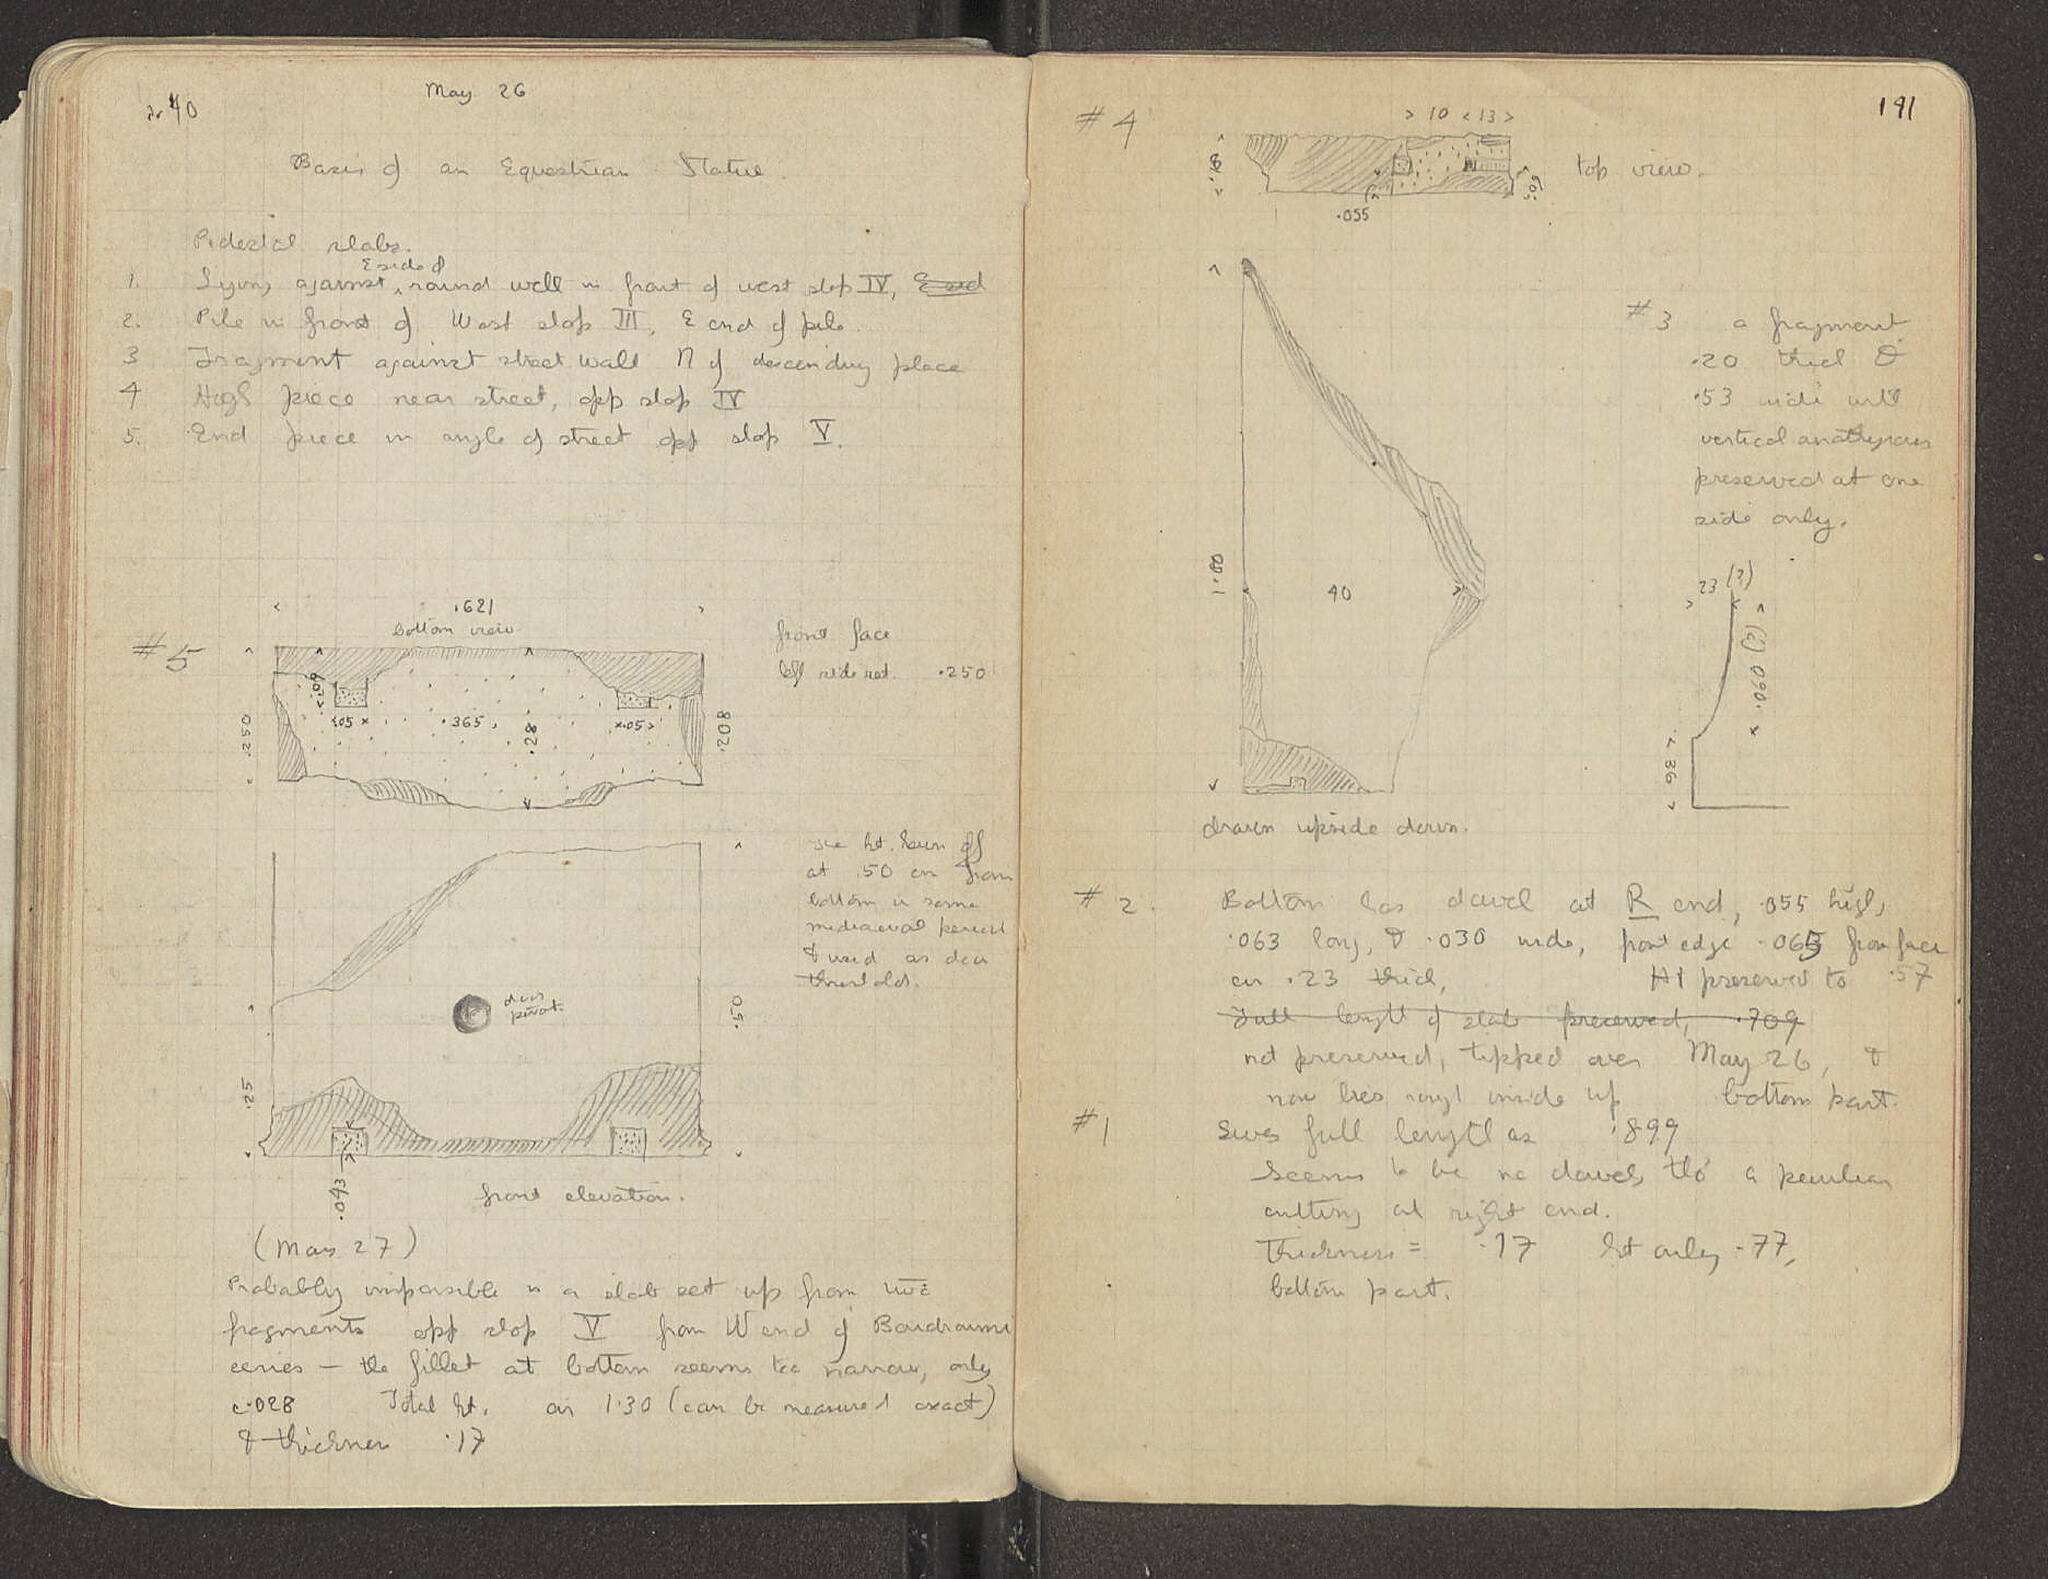 May 26
Basis of an Equestrian Statue.
Pedestal slabs.
E side of
1. Lying against round well in front of west shop IV,
2. Pile in front of West shop III, E end of pile.
3 Fragment against street wall N of descending place
4 High piece near street, opp shop IV
5. End piece in angle of street opp shop V.
#5
.621
bottom view
front face
left side ret. .250
.09
.250
.05
.365
.28
.05
.208
at .50 cm from
bottom in some
mediaeval period
& used as door
threshold.
door
pivot.
.50
.25
.043
front elevation.
(May 27)
Probably impossible is a slab set up from two
fragments opp shop V from W end of
series — the fillet at bottom seems too narrow, only
c .028 Total ht. on 1.30 (can be measured exact)
& thickness .17
191
#4
> 10 < 13 >
.18
top view.
.055
.09
1.00
40
drawn upside down.
#3 a fragment
.20 thick &
.53 wide with
vertical anathyrosis
preserved at one
side only.
23 (?)
.090 (?)
.36
#2. Bottom has dowel at R end, .055 high,
.063 long, & .030 wide, front edge .065 from face
on .23 thick, Ht preserved to .57
Full length of slab preserved, .709
not preserved, tipped over May 26, &
now lies inside up bottom part.
#1 Gives full length as .899
Seems to be no dowels, tho' a peculiar
cutting at right end.
Thickness = .17 ht only .77,
bottom part.